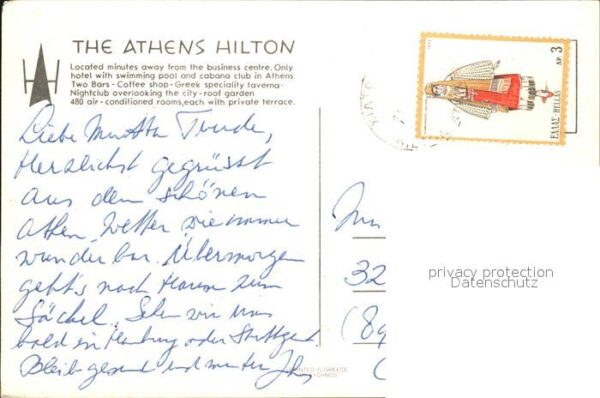 THE ATHENS HILTON
Located minutes away from the business centre. Only
hotel with swimming pool and cabana club in Athens
Two Bars - Coffee shop - Greek speciality taverna -
Nightclub overlooking the city - roof garden
480 air - conditioned rooms, each with private terrace.
Liebe Trude,
Herzlichst gegrüsst
aus dem schönen
Athen, Wetter wie immer
wunderbar. Übermorgen
geht's nach Hause zum
Säckel. Sehn wir uns
bald in Hamburg oder Stuttgart
Bleib gesund und munter
PRINTED IN GREECE
ΕΛΛΑΣ HELLAS
ΔΡ 3
32
(89
privacy protection
Datenschutz